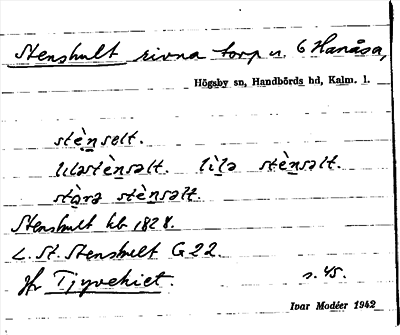 Stenshult rivna torp u. 6 Hanåsa,
Högsby sn, Handbörds hd, Kalm. l.
stènsəlt.
liləstènsəlt. lìlə stènsəlt.
stòrə stènsəlt.
Stenshult hb 1828.
L. St. Stenshult G 22.
Hr Tjyvehiet. s. 45.
Ivar Modéer 1942